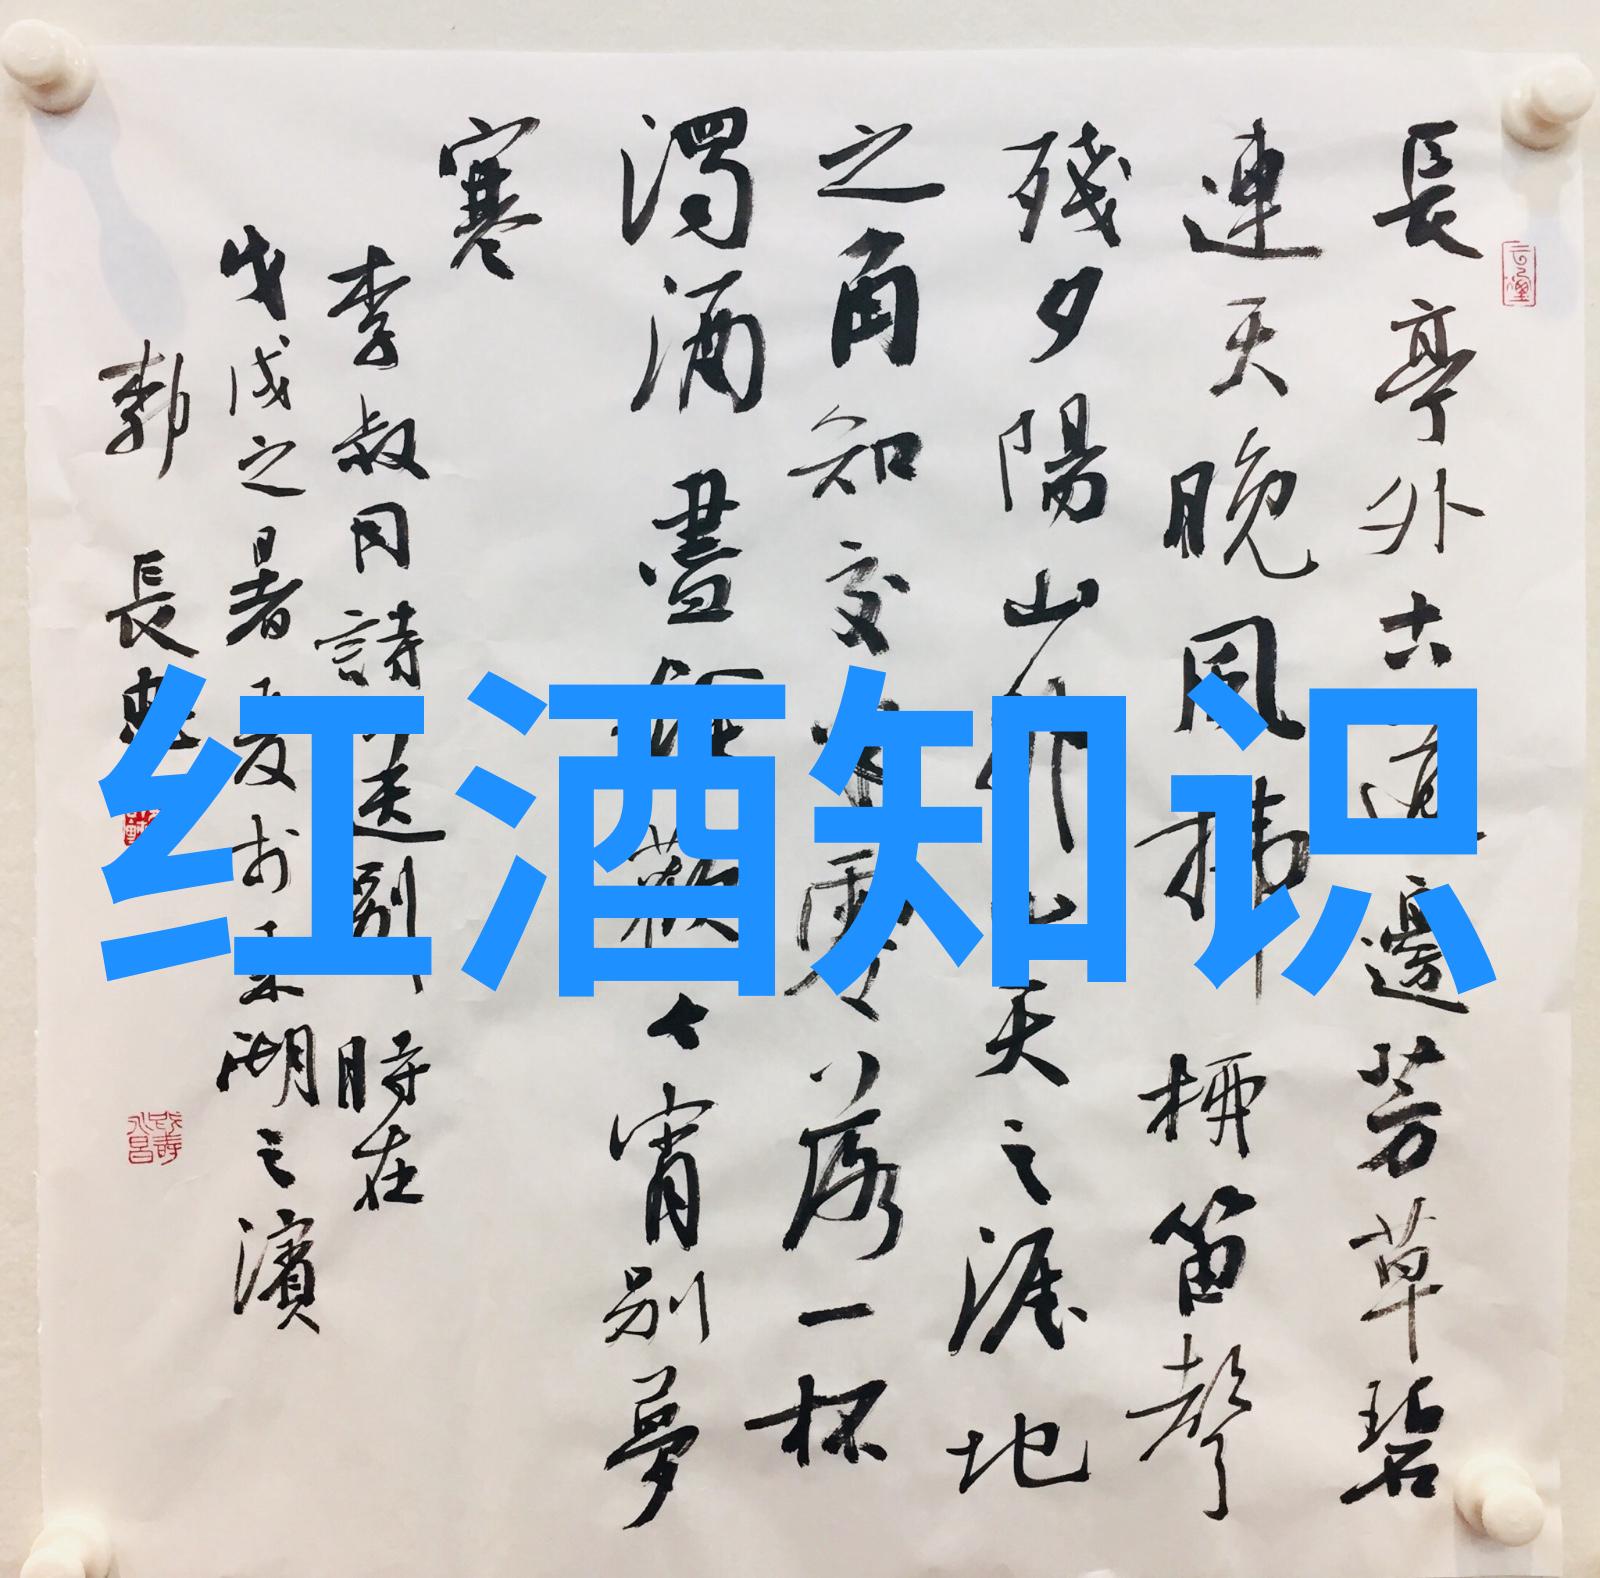 長亭外古道邊芳草碧
連天晚風拂柳笛聲
殘夕陽山外山天之涯地
之角知交半零落一杯
濁酒盡餘歡今宵别夢
寒
李叔同詩送别時在
戊戌之暑夏於東湖之濱
郭長
红酒知识